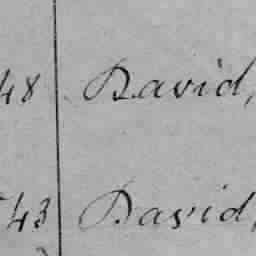 48 David,
43 David,